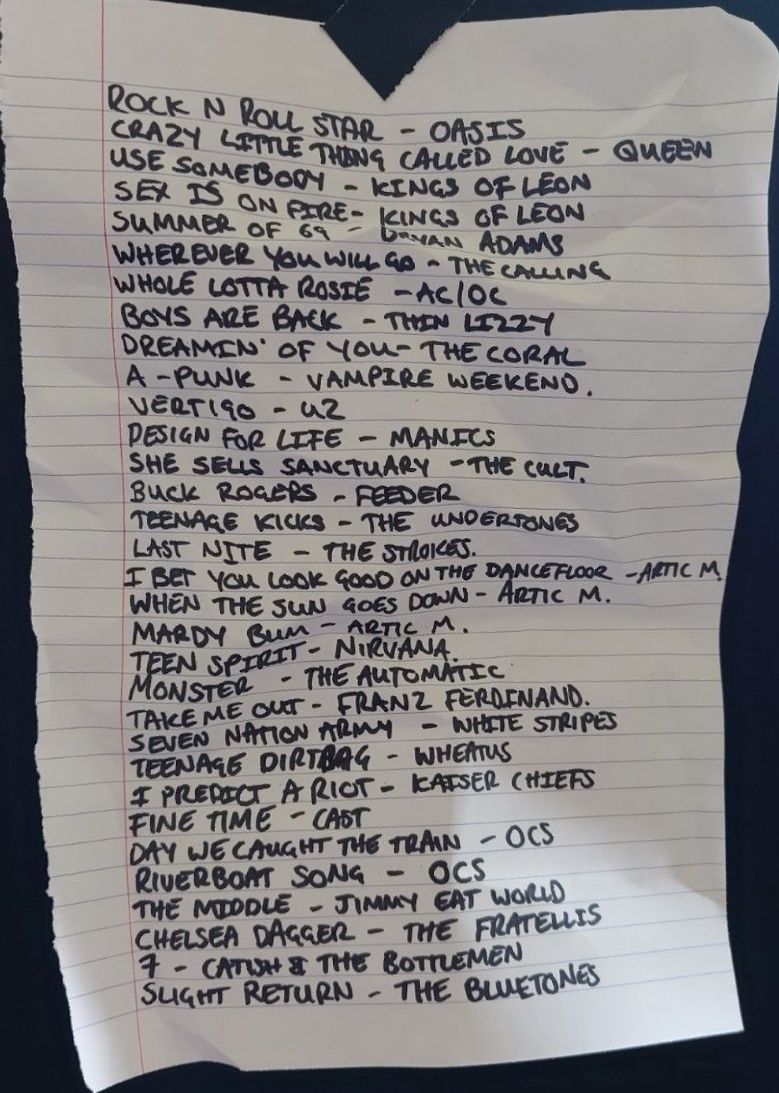 ROCK N ROLL STAR - OASIS
CRAZY LITTLE THING CALLED LOVE - QUEEN
USE SOMEBODY - KINGS OF LEON
SEX IS ON FIRE - KINGS OF LEON
SUMMER OF 69 - BRYAN ADAMS
WHEREVER YOU WILL GO - THE CALLING
WHOLE LOTTA ROSIE - AC/DC
BOYS ARE BACK - THIN LIZZY
DREAMIN' OF YOU - THE CORAL
A-PUNK - VAMPIRE WEEKEND.
VERTIGO - U2
DESIGN FOR LIFE - MANICS
SHE SELLS SANCTUARY - THE CULT.
BUCK ROGERS - FEEDER
TEENAGE KICKS - THE UNDERTONES
LAST NITE - THE STROKES.
I BET YOU LOOK GOOD ON THE DANCEFLOOR - ARTIC M.
WHEN THE SUN GOES DOWN - ARTIC M.
MARDY BUM - ARTIC M.
TEEN SPIRIT - NIRVANA
MONSTER - THE AUTOMATIC
TAKE ME OUT - FRANZ FERDINAND.
SEVEN NATION ARMY - WHITE STRIPES
TEENAGE DIRTBAG - WHEATUS
I PREDICT A RIOT - KAISER CHIEFS
FINE TIME - CAST
DAY WE CAUGHT THE TRAIN - OCS
RIVERBOAT SONG - OCS
THE MIDDLE - JIMMY EAT WORLD
CHELSEA DAGGER - THE FRATELLIS
7 - CATFISH & THE BOTTLEMEN
SLIGHT RETURN - THE BLUETONES